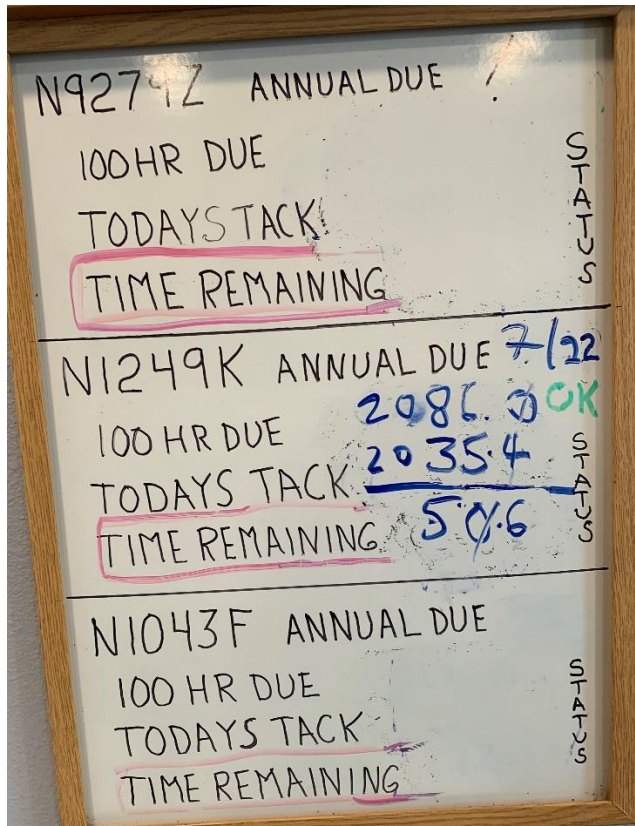 N9274Z ANNUAL DUE /
100HR DUE
TODAYS TACK
TIME REMAINING
STATUS
N1249K ANNUAL DUE 7/22
100 HR DUE 2086.0 OK
TODAYS TACK 2035.4
TIME REMAINING 50.6
STATUS
N1043F ANNUAL DUE
100 HR DUE
TODAYS TACK
TIME REMAINING
STATUS